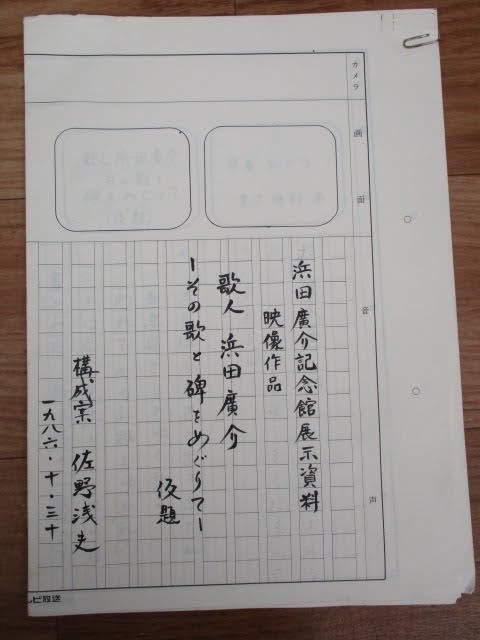 カメラ
画面
音声
浜田廣介記念館展示資料
映像作品
歌人 浜田廣介
ーその歌と碑をめぐりてー
仮題
佐野浅夫
一九八六・十・三十
レビ放送